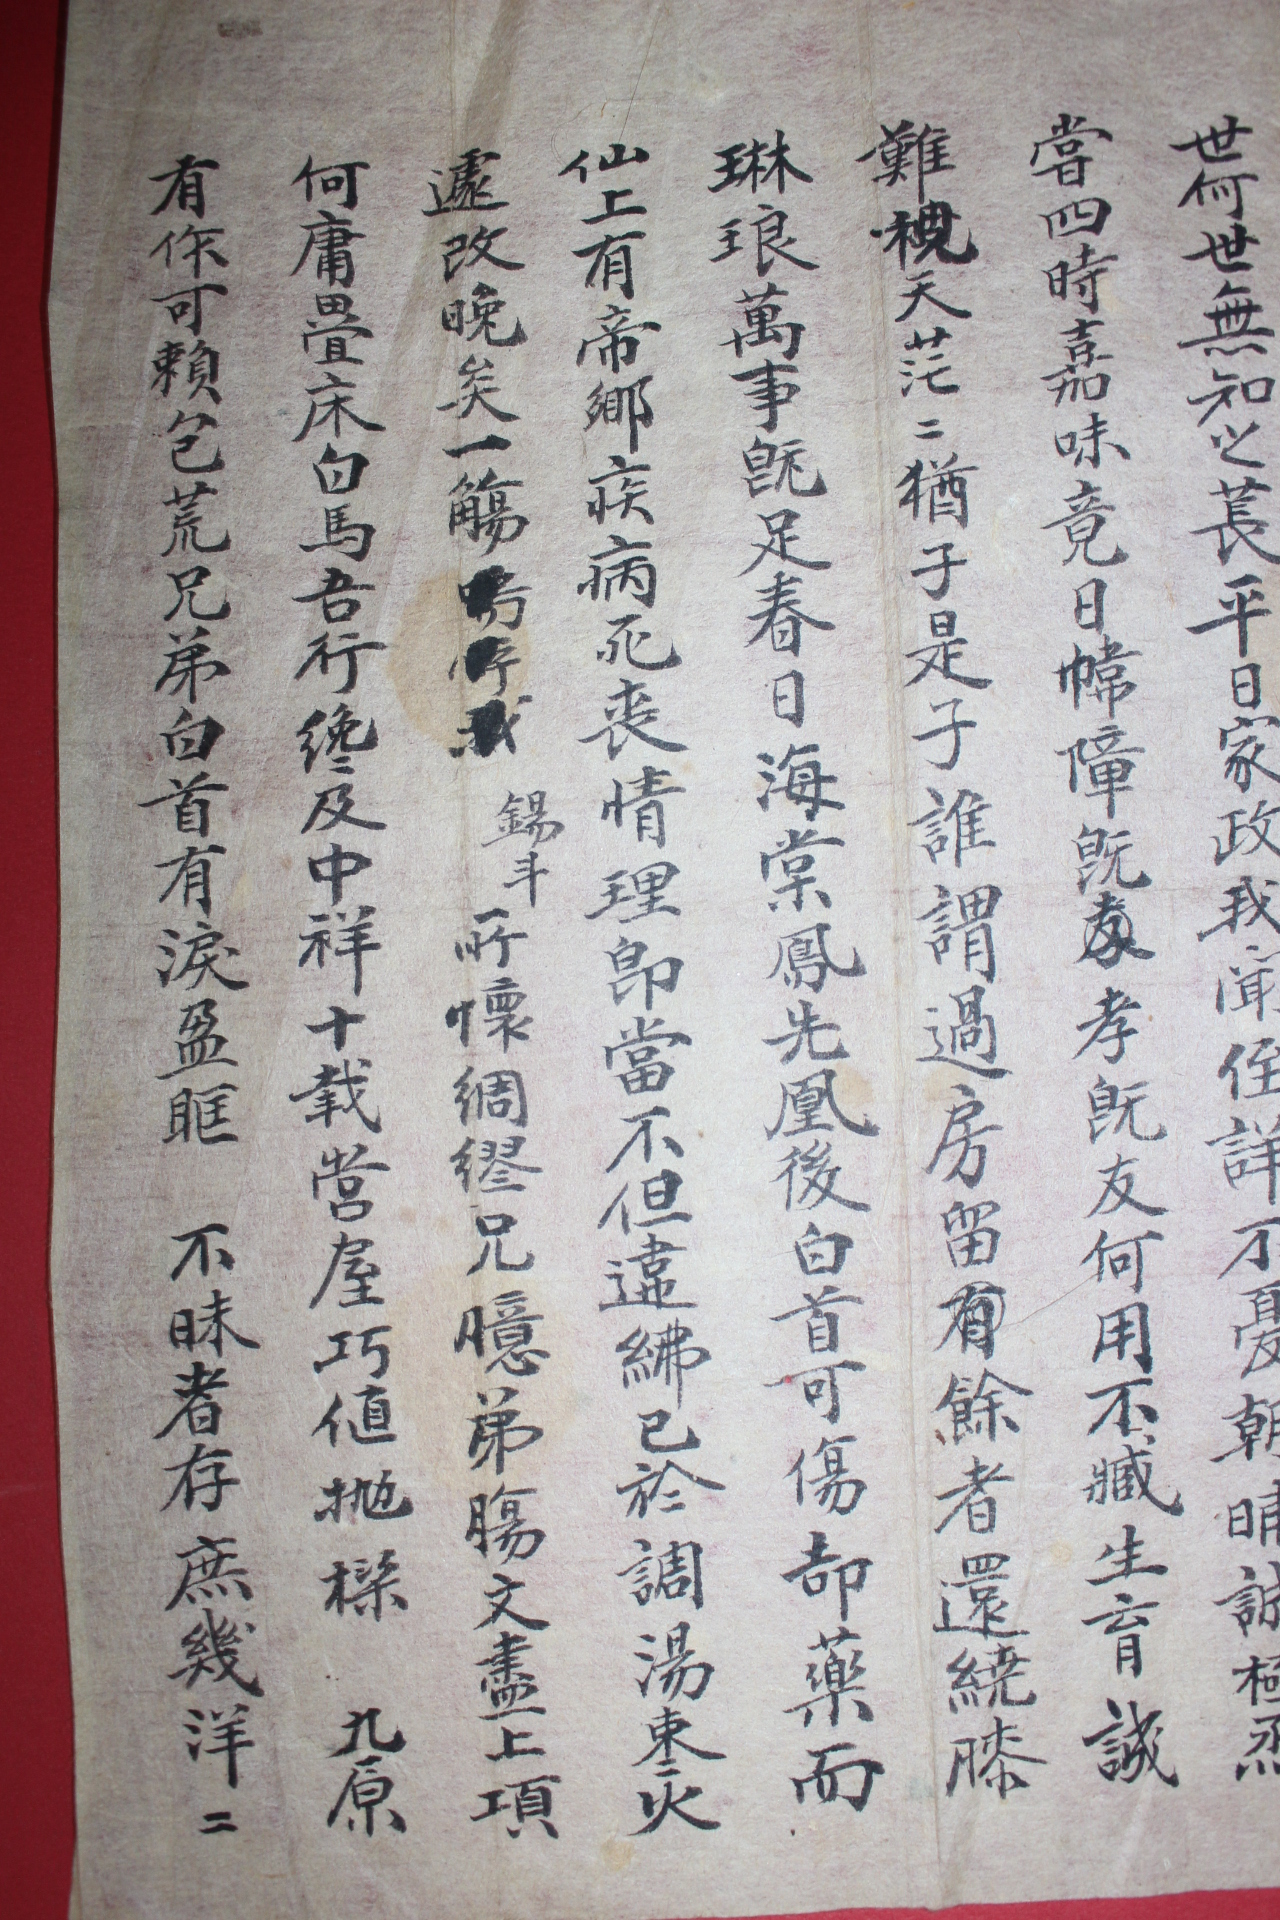 世何世無知之萇平日家政我聞侄詳不憂朝晡誠極烝
甞四時嘉味竟日幃障旣孝旣友何用不臧生育誠
難天茫〻猶子是子誰謂過房留有餘者還繞膝
琳琅萬事旣足春日海棠鳳先凰後白首可傷却藥而
仙上有帝鄉疾病死丧情理卽當不但違紼已於調湯束火
遽改晚矣一觴嗚呼我錫斗所懷綢繆兄臆弟膓文盡上項
何庸疊床白馬吾行纔及中祥十載營屋巧値拋樑 九原
有作可賴包荒兄弟白首有淚盈眶 不昧者存庶幾洋〻